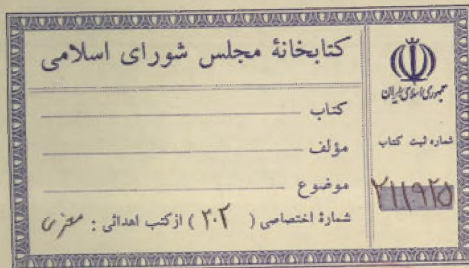 کتابخانهٔ مجلس شورای اسلامی
کتاب
مؤلف
موضوع
شمارهٔ اختصاصی ( ۲۰۲ ) از کتب اهدائی :
جمهوری اسلامی ایران
شماره ثبت کتاب
۲۱۱۹۲۵